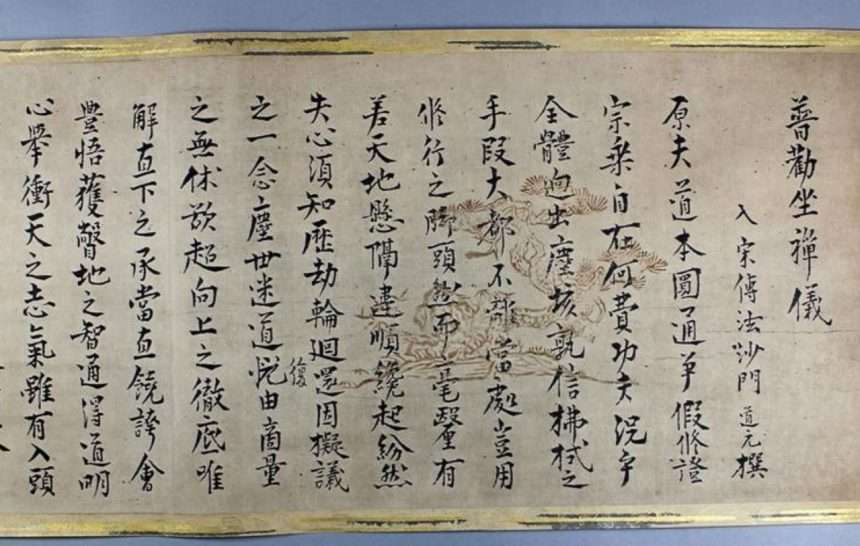 普勸坐禪儀
入宋傳法沙門 道元 撰
原夫道本圓通爭假修證
宗乘自在何費功夫況乎
全體迥出塵垓孰信拂拭之
手段大都不離當處豈用
修行之脚頭然而毫釐有
差天地懸隔違順纔起紛然
失心須知歷劫輪迴還因擬議
復
之一念塵世迷道悦由商量
之無休欲超向上之徹底唯
解直下之承當直饒誇會
豐悟獲瞥地之智通得道明
心擧衝天之志氣雖有入頭